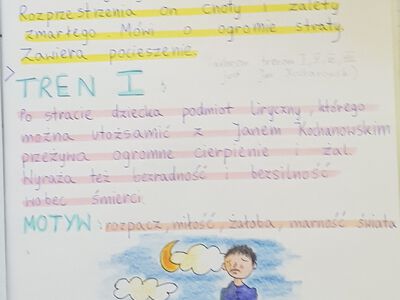 Rozprzestrzenia on cnoty i zalety
zmarłego. Mówi o ogromie straty.
Zawiera pocieszenie.
TREN I:
jest Jan Kochanowski)
Po stracie dziecka podmiot liryczny, którego
można utożsamić z Janem Kochanowskim
przeżywa ogromne cierpienie i żal.
Wyraża też bezradność i bezsilność
wobec śmierci.
MOTYW: rozpacz, miłość, żałoba, marność świata